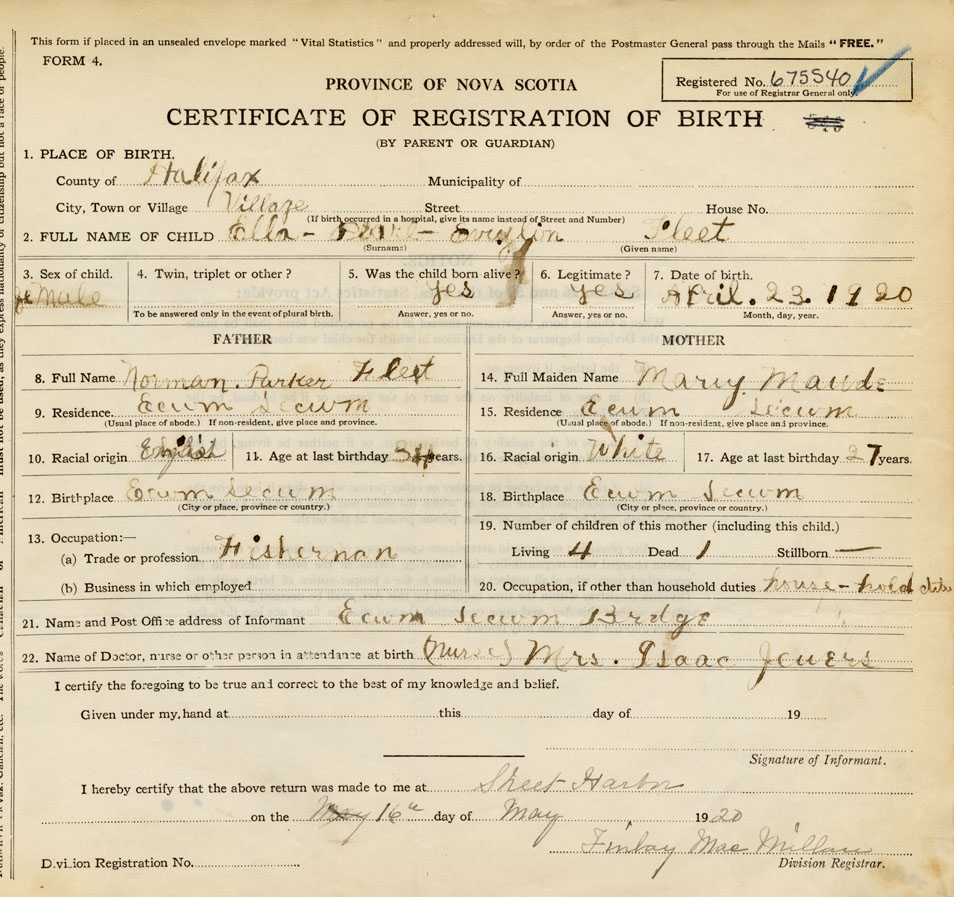 This form if placed in an unsealed envelope marked "Vital Statistics" and properly addressed will, by order of the Postmaster General pass through the Mails "FREE."
FORM 4.
Registered No. 675540
For use of Registrar General only.
PROVINCE OF NOVA SCOTIA
CERTIFICATE OF REGISTRATION OF BIRTH
(BY PARENT OR GUARDIAN)
1. PLACE OF BIRTH.
County of Halifax Municipality of
City, Town or Village Village Street House No.
(If birth occurred in a hospital, give its name instead of Street and Number)
2. FULL NAME OF CHILD Ella - Fleet
(Surname) (Given name)
3. Sex of child. 4. Twin, triplet or other? 5. Was the child born alive? 6. Legitimate? 7. Date of birth.
feMale yes yes April. 23. 1920
To be answered only in the event of plural birth. Answer, yes or no. Answer, yes or no. Month, day, year.
FATHER MOTHER
8. Full Name Norman. Parker Fleet
14. Full Maiden Name Mary Maude
9. Residence. Ecum Secum
15. Residence Ecum Secum
(Usual place of abode.) If non-resident, give place and province.
(Usual place of abode.) If non-resident, give place and province.
10. Racial origin English 11. Age at last birthday 34 years.
16. Racial origin White 17. Age at last birthday 27 years.
12. Birthplace Ecum Secum
18. Birthplace Ecum Secum
(City or place, province or country.)
(City or place, province or country.)
13. Occupation:—
(a) Trade or profession Fisherman
(b) Business in which employed
19. Number of children of this mother (including this child.)
Living 4 Dead 1 Stillborn —
20. Occupation, if other than household duties house-hold
21. Name and Post Office address of Informant Ecum Secum Brdge
22. Name of Doctor, nurse or other person in attendance at birth (Nurse) Mrs. Isaac Jewers
I certify the foregoing to be true and correct to the best of my knowledge and belief.
Given under my hand at this day of 19
Signature of Informant.
I hereby certify that the above return was made to me at Sheet Harbor
on the 16th day of May 1920
Finlay MacMillan
Division Registration No.
Division Registrar.